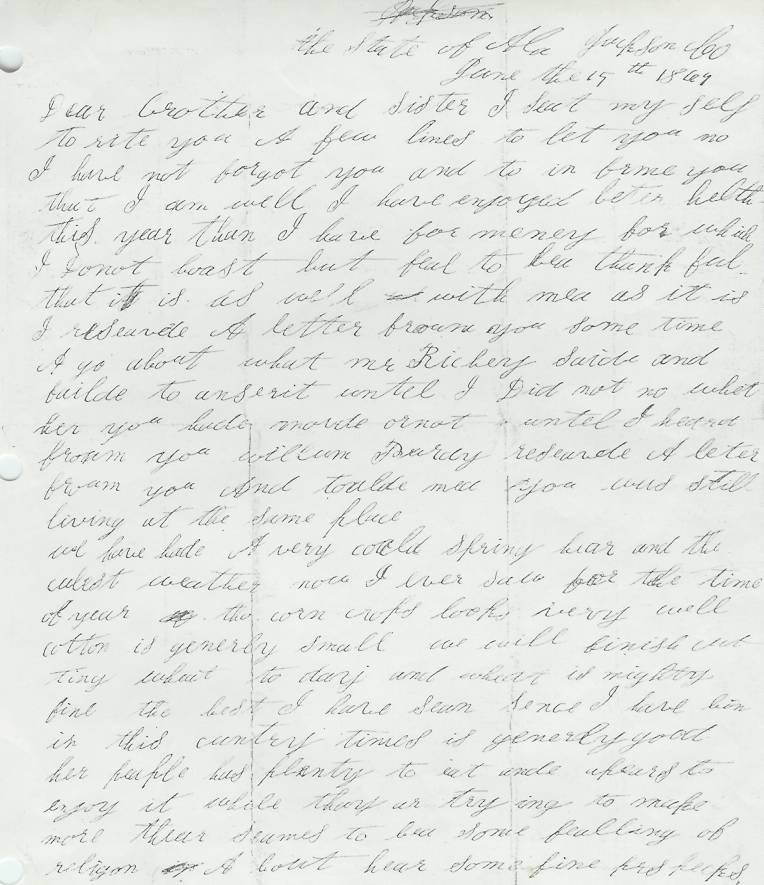 the State of Ala Jackson Co
June the 19th 1869
Dear brother and sister I seat my self
to rite you A few lines to let you no
I have not forgot you and to in forme you
that I am well I have enjoyed beter helth
this year than I have for meney for which
I Donot boast but feal to bea thank ful
that it is as well with mea as it is
I reseavde A letter froum you some time
A go about what mr Richey saide and
failde to anserit untel I Did not no whet
her you hade movde ornot untel I heard
froum you william Purdy reseavde A leter
froum you And toulde mea you was still
living at the same place
we have hade A very coald Spring hear and the
culest weather now I ever saw for the time
of year the corn crops looks very well
cotton is generly small we will finish cut
ting wheat to day and wheat is mighty
fine the best I have sean sence I have bin
in this cuntry times is generly good
her people has plenty to eat ande apears to
enjoy it while thay ar try ing to make
more thear seames to bea some fealling of
religon A bout hear some fine prospeks